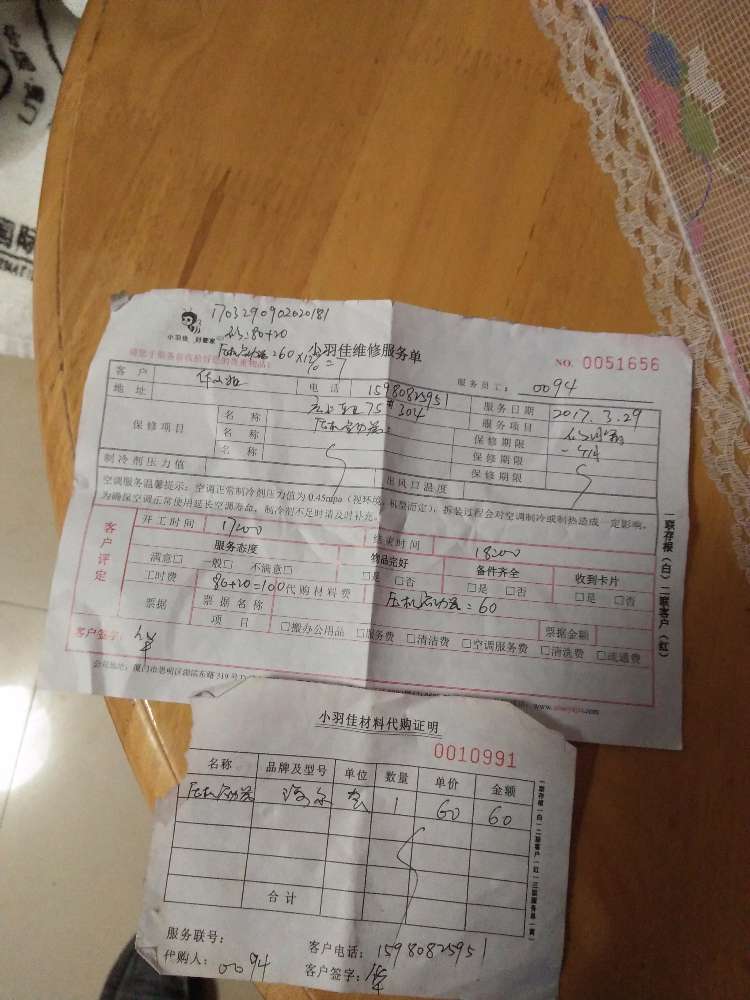 1703290902020181
80+20
小羽佳 好管家
小羽佳维修服务单
压机启动器260×12%=7
NO. 0051656
请您于服务前收拾好您的贵重物品:
服务员工: 0094
客户
电话 15980825951
服务日期 2017.3.29
地址
75# 304
服务项目
保修项目
名称 压机启动器
保修期限 一年
名称
保修期限
名称
保修期限
制冷剂压力值
出风口温度
空调服务温馨提示:空调正常制冷剂压力值为0.45mpa(视环境、机型而定),拆装过程会对空调制冷或制热造成一定影响,
为确保空调正常使用延长空调寿命,制冷剂不足时请及时补充。
客户评定
开工时间 17:00
结束时间 18:00
服务态度
物品完好
备件齐全
收到卡片
满意□ 一般□ 不满意□
□是 □否
□是 □否
□是 □否
工时费 80+20=100
代购材料费 压机启动器=60
票据
票据名称
票据金额
项目
□搬办公用品 □服务费 □清洁费 □空调服务费 □清洗费 □疏通费
客户签字:
公司地址:厦门市思明区湖滨东路319号
一联存根(白)二联客户(红)
小羽佳材料代购证明
0010991
名称 品牌及型号 单位 数量 单价 金额
压机启动器 海尔 套 1 60 60
合计
服务联号:
客户电话: 15980825951
代购人: 0094
客户签字:
一联存根(白)二联客户(红)三联服务单(黄)